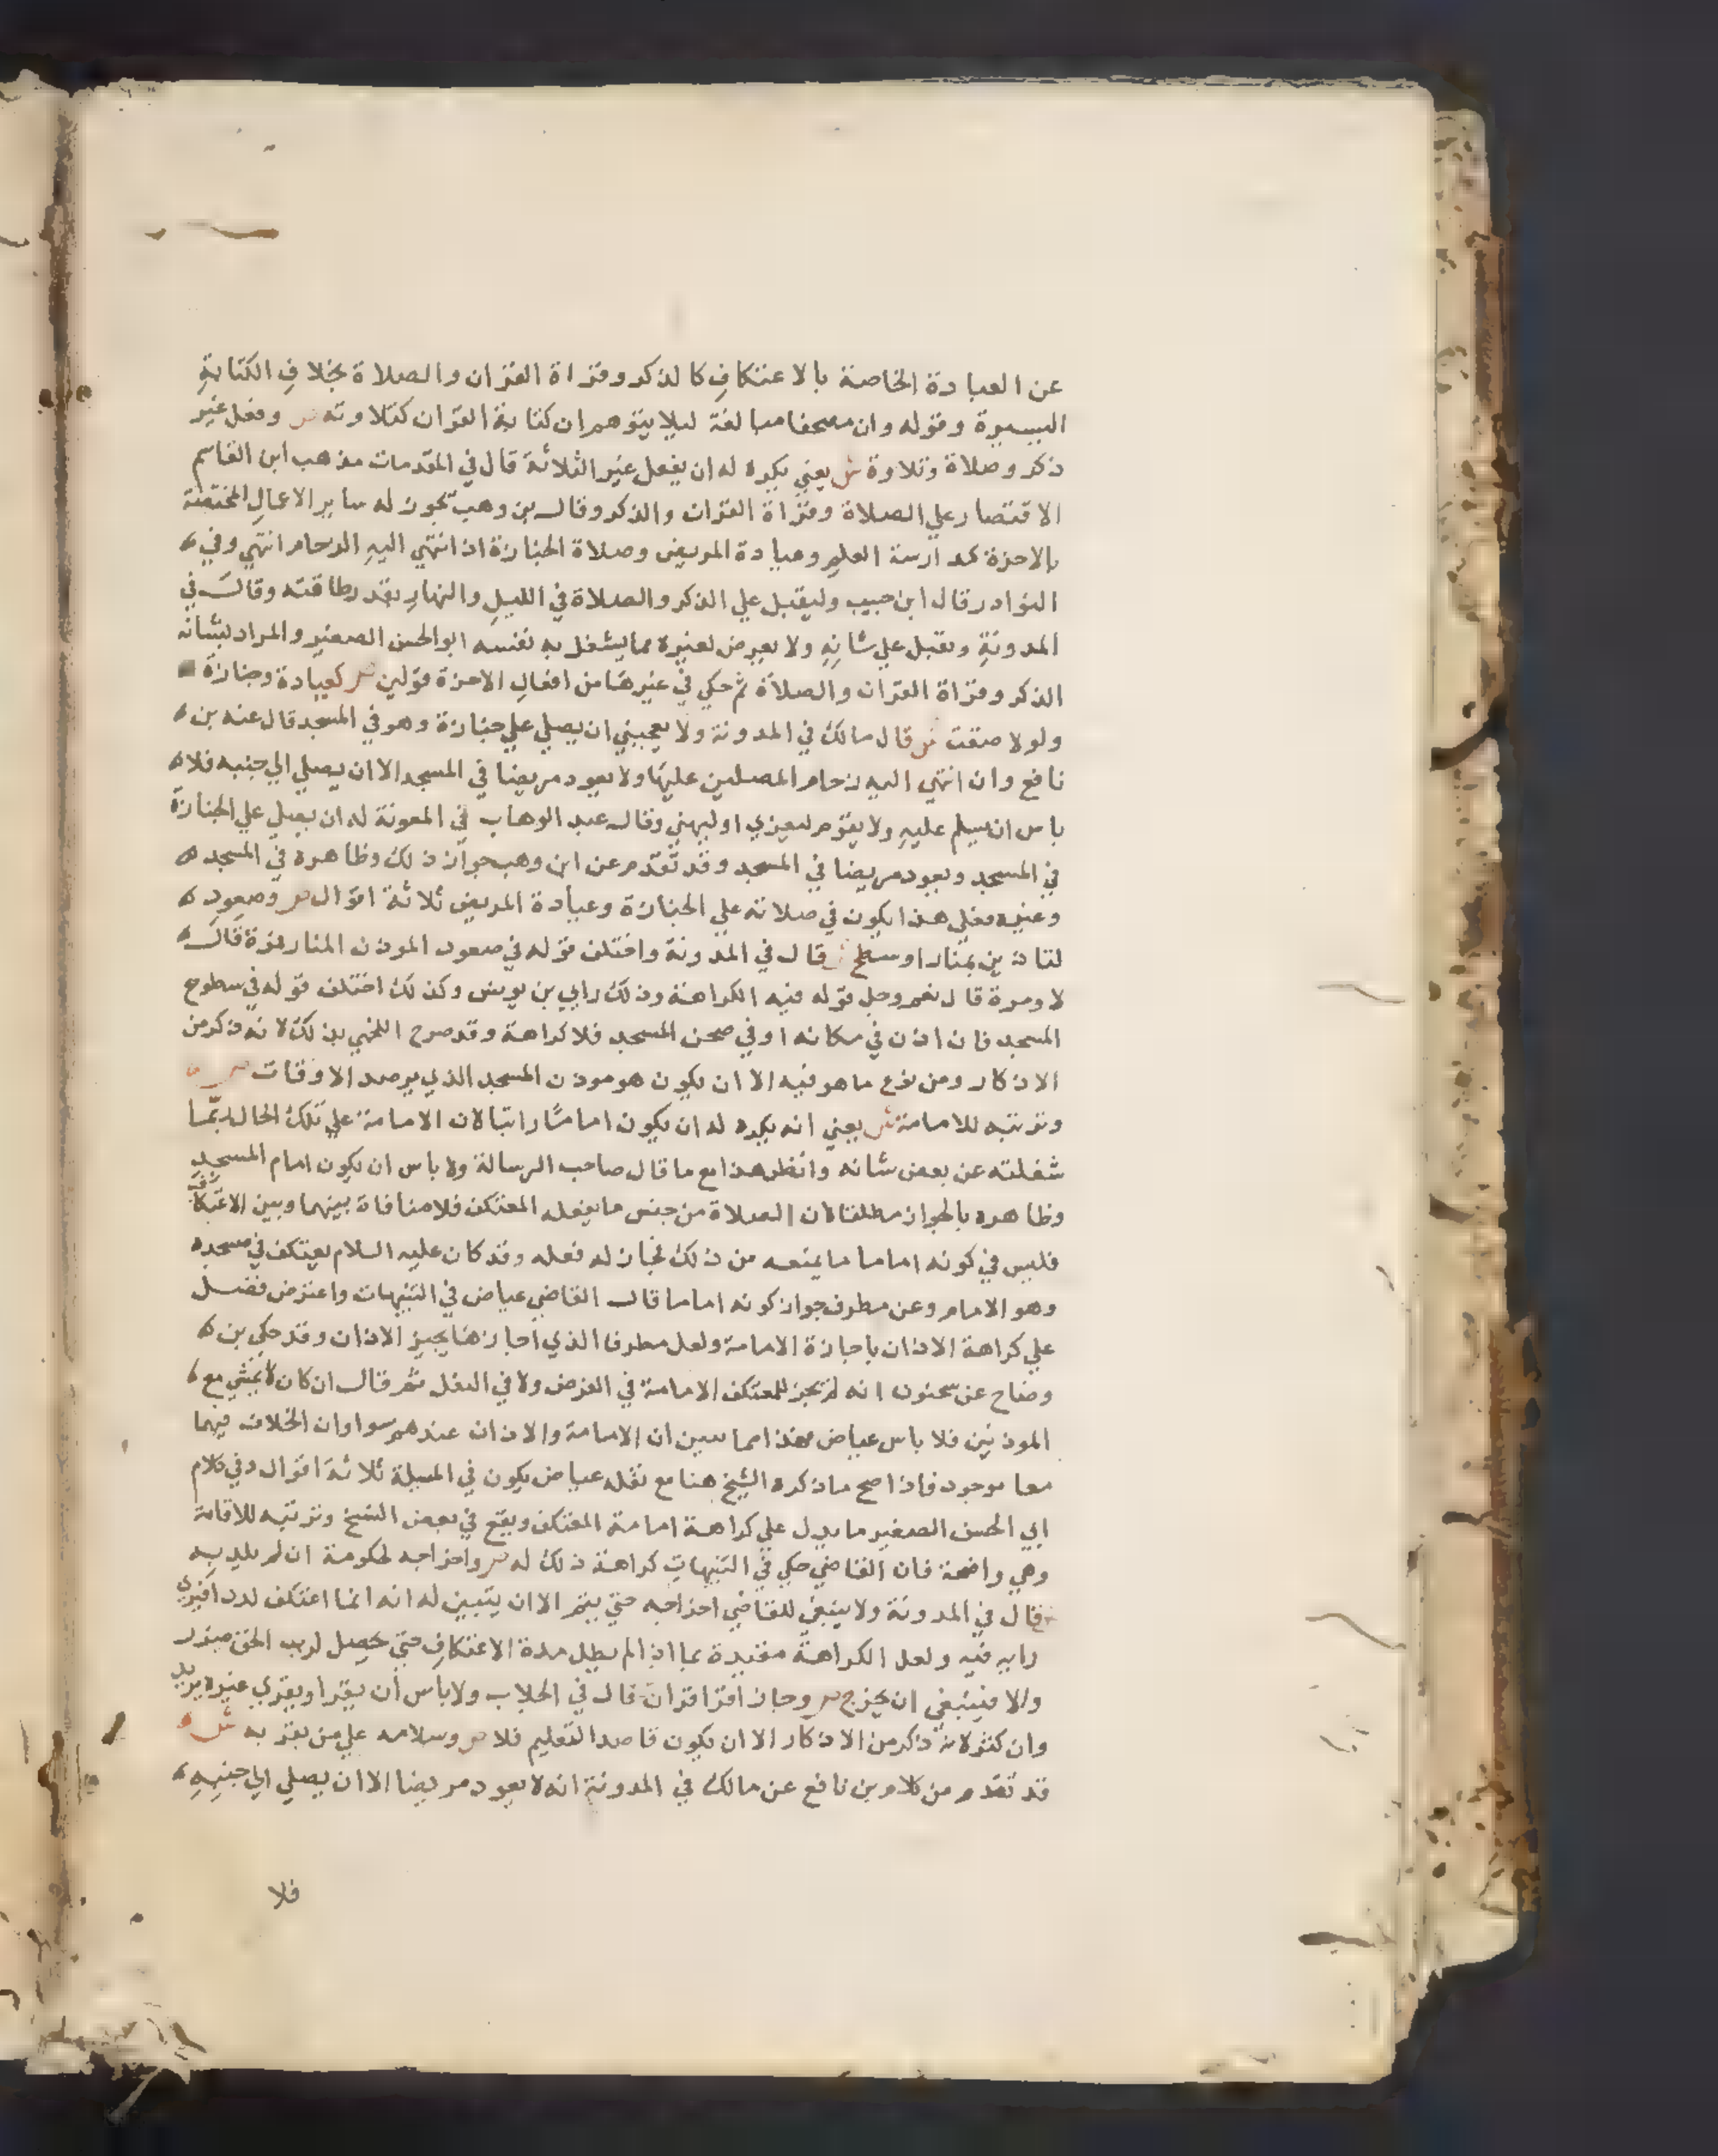 عن العبادة الخاصة بالاعتكاف كالذكر وقراة القران والصلاة بخلاف الكتابة
اليسيرة وقوله وان مصحفا مبالغة ليلا يتوهم ان كتابة القران كتلاوته ص وفعل غير
ذكر وصلاة وتلاوة ش يعني يكره له ان يفعل غير الثلاثة قال في المقدمات مذهب ابن القاسم
الاقتصار علي الصلاة وقراة القران والذكر وقال بن وهب يجوز له ساير الاعمال المختصة
بالاخرة كمدارسة العلم وعيادة المريض وصلاة الجنازة اذا انتهي اليه الزحام انتهي وفي
النوادر قال ابن حبيب وليقبل علي الذكر والصلاة في الليل والنهار بقدر طاقته وقال في
المدونة ويقبل علي شانه ولا يعرض لغيره مما يشغل به نفسه ابو الحسن الصغير والمراد بشانه
الذكر وقراة القران والصلاة ثم حكي في غيرها من افعال الاخرة قولين ص كعيادة وجنازة
ولو لاصقت ش قال مالك في المدونة ولا يعجبني ان يصلي علي جنازة وهو في المسجد قال عنه بن
نافع وان انتهي اليه زحام المصلين عليها ولا يعود مريضا في المسجد الا ان يصلي الي جنبه فلا
باس ان يسلم عليه ولا يقوم ليعزي او ليهني وقال عبد الوهاب في المعونة له ان يصلي علي الجنازة
في المسجد ويعود مريضا في المسجد وقد تقدم عن ابن وهب جواز ذلك وظاهره في المسجد
وغيره فعلي هذا يكون في صلاته علي الجنازة وعيادة المريض ثلاثة اقوال ص وصعوده
لتاذين بمنار او سطح ش قال في المدونة واختلف قوله في صعود الموذن المنار فمرة قال
لا ومرة قال نعم وجل قوله فيه الكراهة وذلك رايي بن يونس وكذلك اختلف قوله في سطوح
المسجد فان اذن في مكانه او في صحن المسجد فلا كراهة وقد صرح اللخمي بذلك لانه ذكر من
الاذكار ومن نوع ما هو فيه الا ان يكون هو موذن المسجد الذي يرصد الاوقات ص
وترتبه للامامة ش يعني انه يكره له ان يكون اماما راتبا لان الامامة علي تلك الحال ربما
شغلته عن بعض شانه وانظر هذا مع ما قال صاحب الرسالة ولا باس ان يكون امام المسجد
وظاهره بالجواز مطلقا لان الصلاة من جنس ما يفعله المعتكف فلا منافاة بينهما وبين الاعتكاف
فليس في كونه اماما ما يمنعه من ذلك فجاز له فعله وقد كان عليه السلام يعتكف في مسجده
وهو الامام وعن مطرف جواز كونه اماما قال القاضي عياض في التنبيهات واعترض فضل
علي كراهة الاذان باجازة الامامة ولعل مطرفا الذي اجازها يجيز الاذان وقد حكي بن
وضاح عن سحنون انه لم يجز للمعتكف الامامة في الفرض ولا في النفل ثم قال ان كان لا يمشي مع
الموذنين فلا باس عياض فهذا مما يبين ان الامامة والاذان عندهم سوا وان الخلاف فيهما
معا موجود فاذا صح ما ذكره الشيخ هنا مع نقله عياض يكون في المسيلة ثلاثة اقوال وفي كلام
ابي الحسن الصغير ما يدل علي كراهة امامة المعتكف ويقع في بعض النسخ وترتبه للاقامة
وهي واضحة فان القاضي حكي في التنبيهات كراهة ذلك له ص واخراجه لحكومة ان لم يلد به
قال في المدونة ولا ينبغي للقاضي اخراجه حتي يتم الا ان يتبين له انه انما اعتكف لددا فيري
رايه فيه ولعل الكراهة مقيدة بما اذا لم يطل مدة الاعتكاف حتي يحصل لرب الحق ضرر
والا فينبغي ان يخرج ص وجاز اقرا قران قال في الجلاب ولا باس ان يقرا ويقري غيره يريد
وان كثر لانه ذكر من الاذكار الا ان يكون قاصد التعليم فلا ص وسلامه علي من بقربه ش
قد تقدم من كلام بن نافع عن مالك في المدونة انه لا يعود مريضا الا ان يصلي الي جنبه
فلا